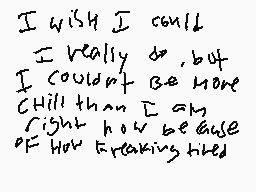 I wish I could
I really do, but
I couldn't Be more
CHill than I am
right now because
OF How Freaking tired